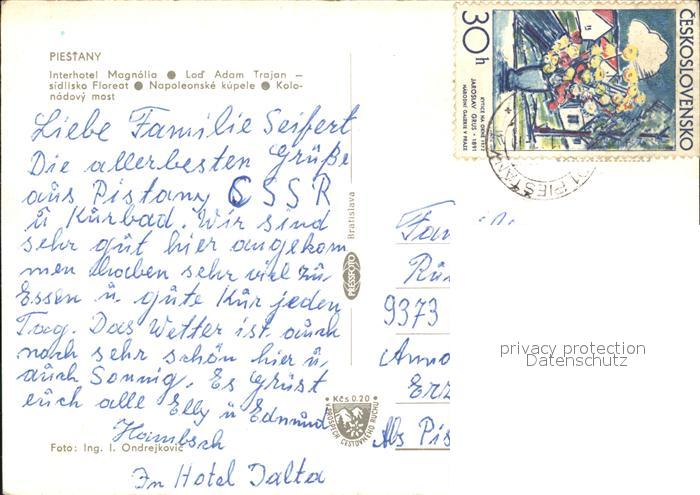 PIEŠŤANY
Interhotel Magnólia ● Loď Adam Trajan —
sídlisko Floreat ● Napoleonské kúpele ● Kolo-
nádový most
Liebe Familie Seifert
Die allerbesten Grüße
aus Pistany CSSR
u Kurbad. Wir sind
sehr gut hier angekom
men haben sehr viel zu
Essen u. gute Kur jeden
Tag. Das Wetter ist auch
noch sehr schön hier u,
auch Sonnig. Es Grüst
euch alle Elly u Edmund
Hambsch
In Hotel Jalta
Foto: Ing. I. Ondrejkovič
PRESSFOTO
Bratislava
Kčs 0.20
V PROSPECH CESTOVNÉHO RUCHU
ČESKOSLOVENSKO
30 h
KYTICE NA OKNĚ 1972
JAROSLAV GRUS · 1891
NÁRODNÍ GALERIE V PRAZE
01 PIEŠŤANY
Fam
9373
Erz
Abs Pis
privacy protection
Datenschutz